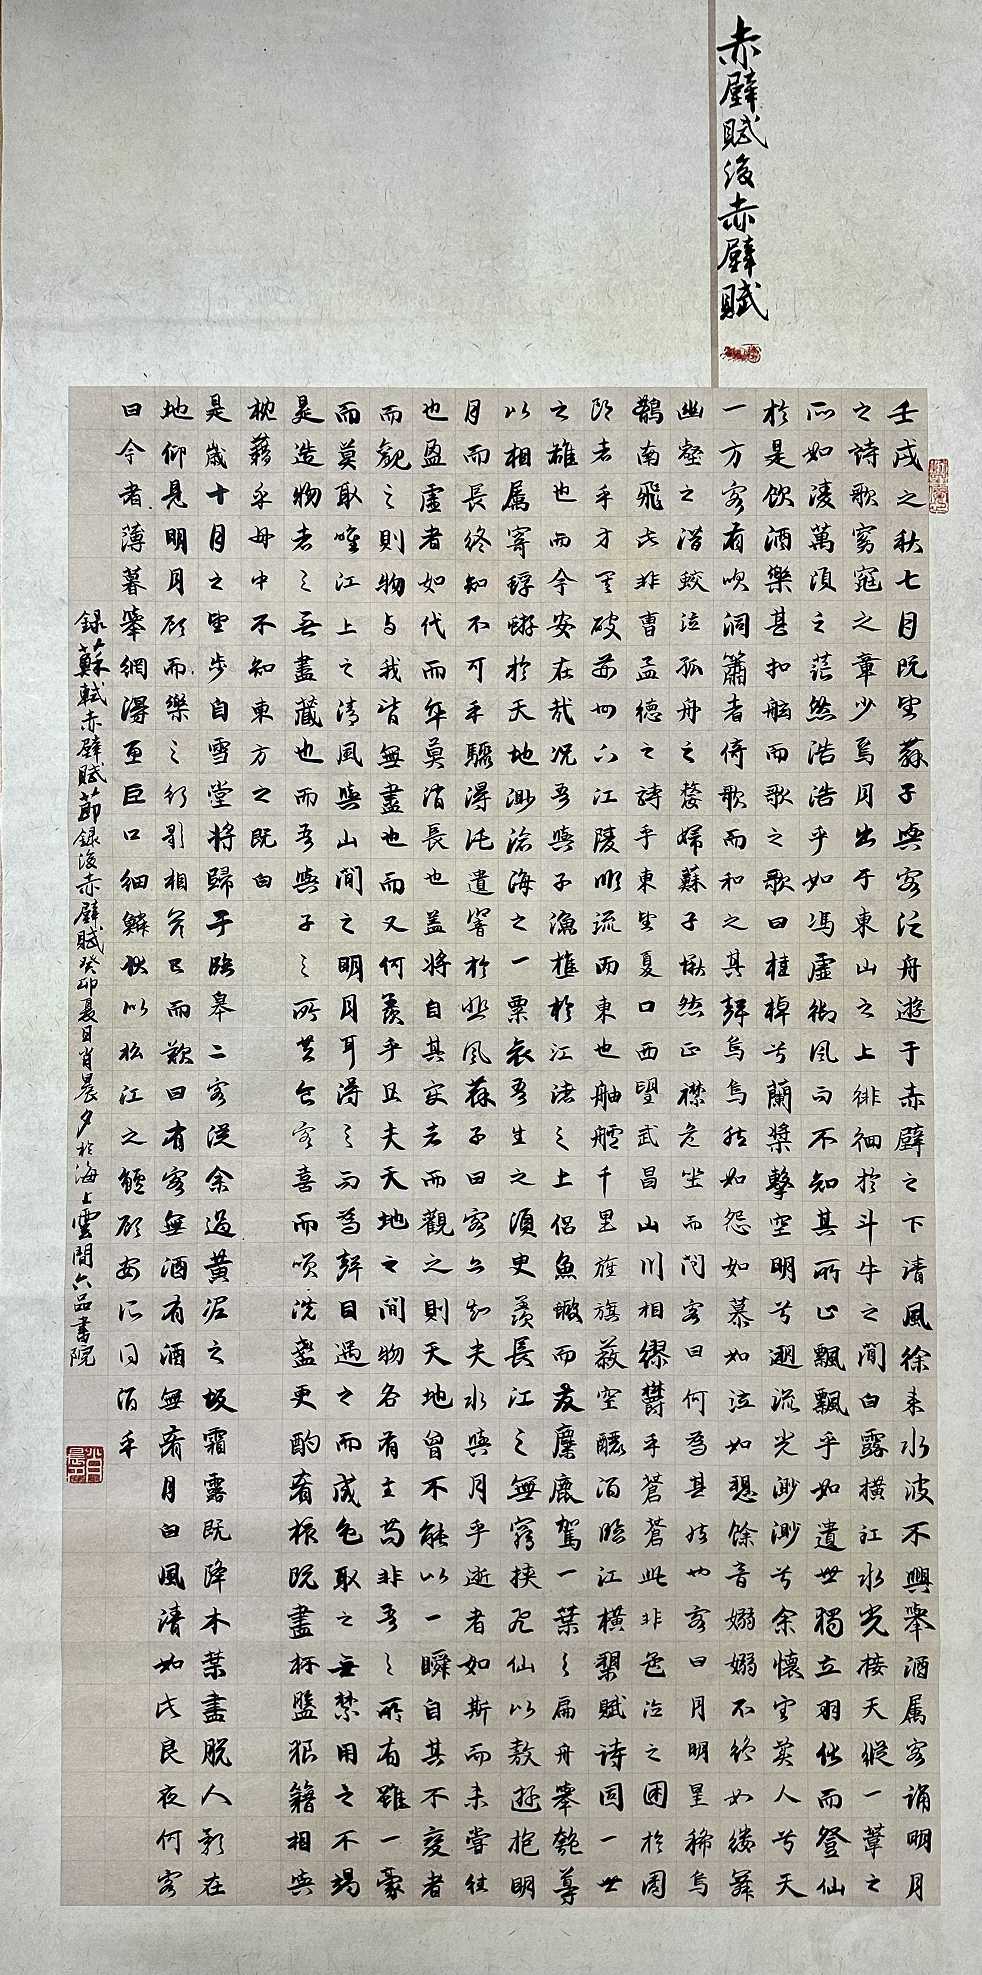 赤壁賦後赤壁賦
壬戌之秋七月既望蘇子與客泛舟遊于赤壁之下清風徐来水波不興舉酒属客誦明月
之詩歌窈窕之章少焉月出于東山之上徘徊於斗牛之間白露橫江水光接天縱一葦之
所如凌萬頃之茫然浩浩乎如馮虛御風而不知其所止飄飄乎如遺世獨立羽化而登仙
於是飲酒樂甚扣舷而歌之歌曰桂棹兮蘭槳擊空明兮遡流光渺渺兮余懷望美人兮天
一方客有吹洞簫者倚歌而和之其聲烏烏然如怨如慕如泣如愬餘音嫋嫋不絕如縷舞
幽壑之潛蛟泣孤舟之嫠婦蘇子愀然正襟危坐而問客曰何為其然也客曰月明星稀烏
鵲南飛此非曹孟德之詩乎東望夏口西望武昌山川相繆鬱乎蒼蒼此非之困於周
郎者乎方其破荊州下江陵順流而東也舳艫千里旌旗蔽空釃酒臨江橫槊賦詩固一世
之雄也而今安在哉况吾與子漁樵於江渚之上侶魚蝦而友麋鹿駕一葉之扁舟舉匏尊
以相属寄蜉蝣於天地渺滄海之一粟哀吾生之須臾羨長江之無窮挾飛仙以遨遊抱明
月而長終知不可乎驟得託遺響於悲風蘇子曰客亦知夫水與月乎逝者如斯而未嘗往
也盈虛者如代而卒莫消長也蓋將自其變者而觀之則天地曾不能以一瞬自其不變者
而觀之則物与我皆無盡也而又何羨乎且夫天地之間物各有主苟非吾之所有雖一豪
而莫取唯江上之清風與山間之明月耳得之而為聲目遇之而成色取之無禁用之不竭
是造物者之無盡藏也而吾與子之所共食客喜而笑洗盞更酌肴核既盡杯盤狠籍相與
枕藉乎舟中不知東方之既白
是歲十月之望步自雪堂將歸于臨皋二客從余過黃泥之坂霜露既降木葉盡脫人影在
地仰見明月顧而樂之行影相答已而歎曰有客無酒有酒無肴月白風清如此良夜何客
曰今者薄暮舉網得魚巨口細鱗狀似松江之鱸顧安所得酒乎
錄蘇軾赤壁賦節錄後赤壁賦癸卯夏日肖晨夕於海上雲間六品書院